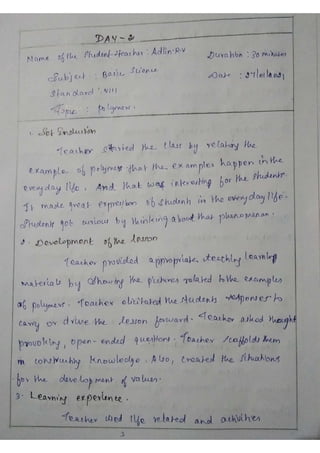 DAY-2
Name of the Student-Teacher : Adlin.R.V Duration : 30 minutes
Subject : Basic Science Date :
Standard : VIII
Topic : Polymers.
1. Set Induction
Teacher started the class by relating the
example of polymers that the examples happen in the
everyday life. And that was interesting for the students.
It made great expression of students in the everyday life.
Students got curious by thinking about that phenomenon.
2. Development of the lesson
Teacher provided appropriate teaching learning
materials by showing the pictures related to the examples
of polymers. Teacher elicitated the students responses to
carry or drive the lesson forward. Teacher asked thought
provoking, open-ended questions. Teacher scaffolds them
in constructing knowledge. Also, created the situations
for the development of values.
3. Learning experience.
Teacher used life related and activities
3